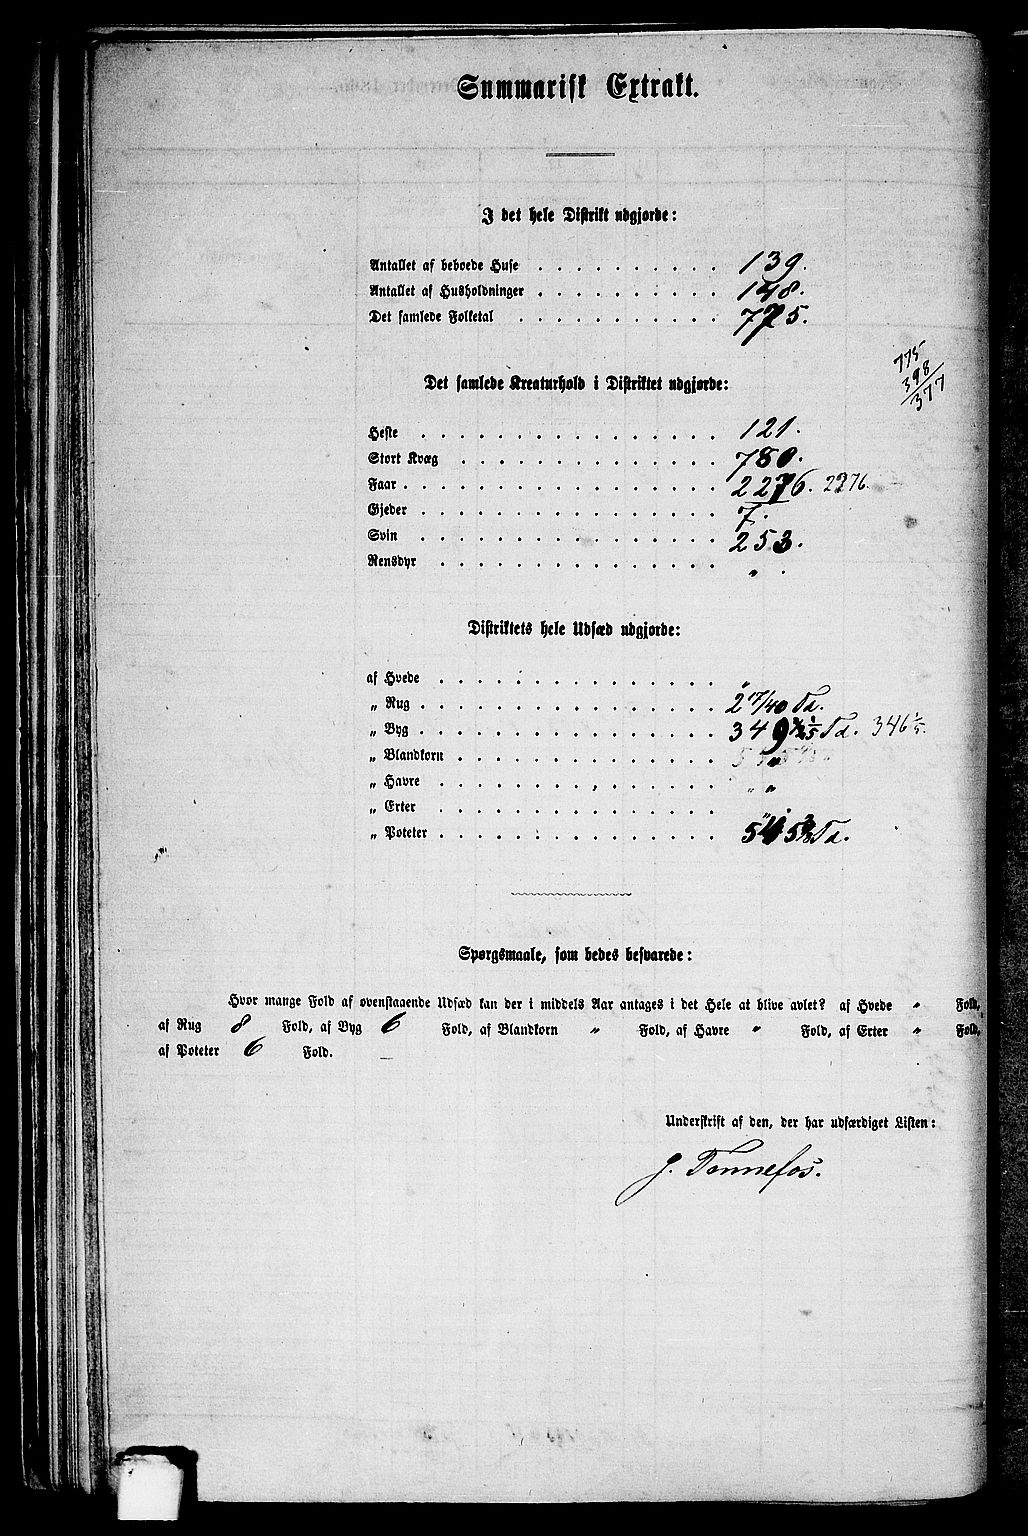 Summarisk Extrakt.
I det hele Distrikt udgjorde:
Antallet af beboede Huse . . . . . . . . . . 139.
Antallet af Husholdninger . . . . . . . . . . 148.
Det samlede Folketal . . . . . . . . . . . 775.
775
398
377
Det samlede Kreaturhold i Distriktet udgjorde:
Heste . . . . . . . . . . . . . . . . 121.
Stort Kvæg . . . . . . . . . . . . . . 780.
Faar . . . . . . . . . . . . . . . . . 2276. 2276.
Gjeder . . . . . . . . . . . . . . . . 7.
Svin . . . . . . . . . . . . . . . . 253.
Rensdyr . . . . . . . . . . . . . . . „ .
Distriktets hele Udsæd udgjorde:
af Hvede . . . . . . . . . . . . . . . „
„ Rug . . . . . . . . . . . . . . . . 2 17/40 Td.
„ Byg . . . . . . . . . . . . . . . . 349 Td. 346 1/5.
„ Blandkorn . . . . . . . . . . . . . . „
„ Havre . . . . . . . . . . . . . . . „ „
„ Erter . . . . . . . . . . . . . . . „
„ Poteter . . . . . . . . . . . . . . . 545 Td.
Spørgsmaale, som bedes besvarede:
Hvor mange Fold af ovenstaaende Udsæd kan der i middels Aar antages i det Hele at blive avlet? af Hvede „ Fold,
af Rug 8 Fold, af Byg 6 Fold, af Blandkorn „ Fold, af Havre „ Fold, af Erter „ Fold,
af Poteter 6 Fold.
Underskrift af den, der har udfærdiget Listen:
J. Tønnefos.